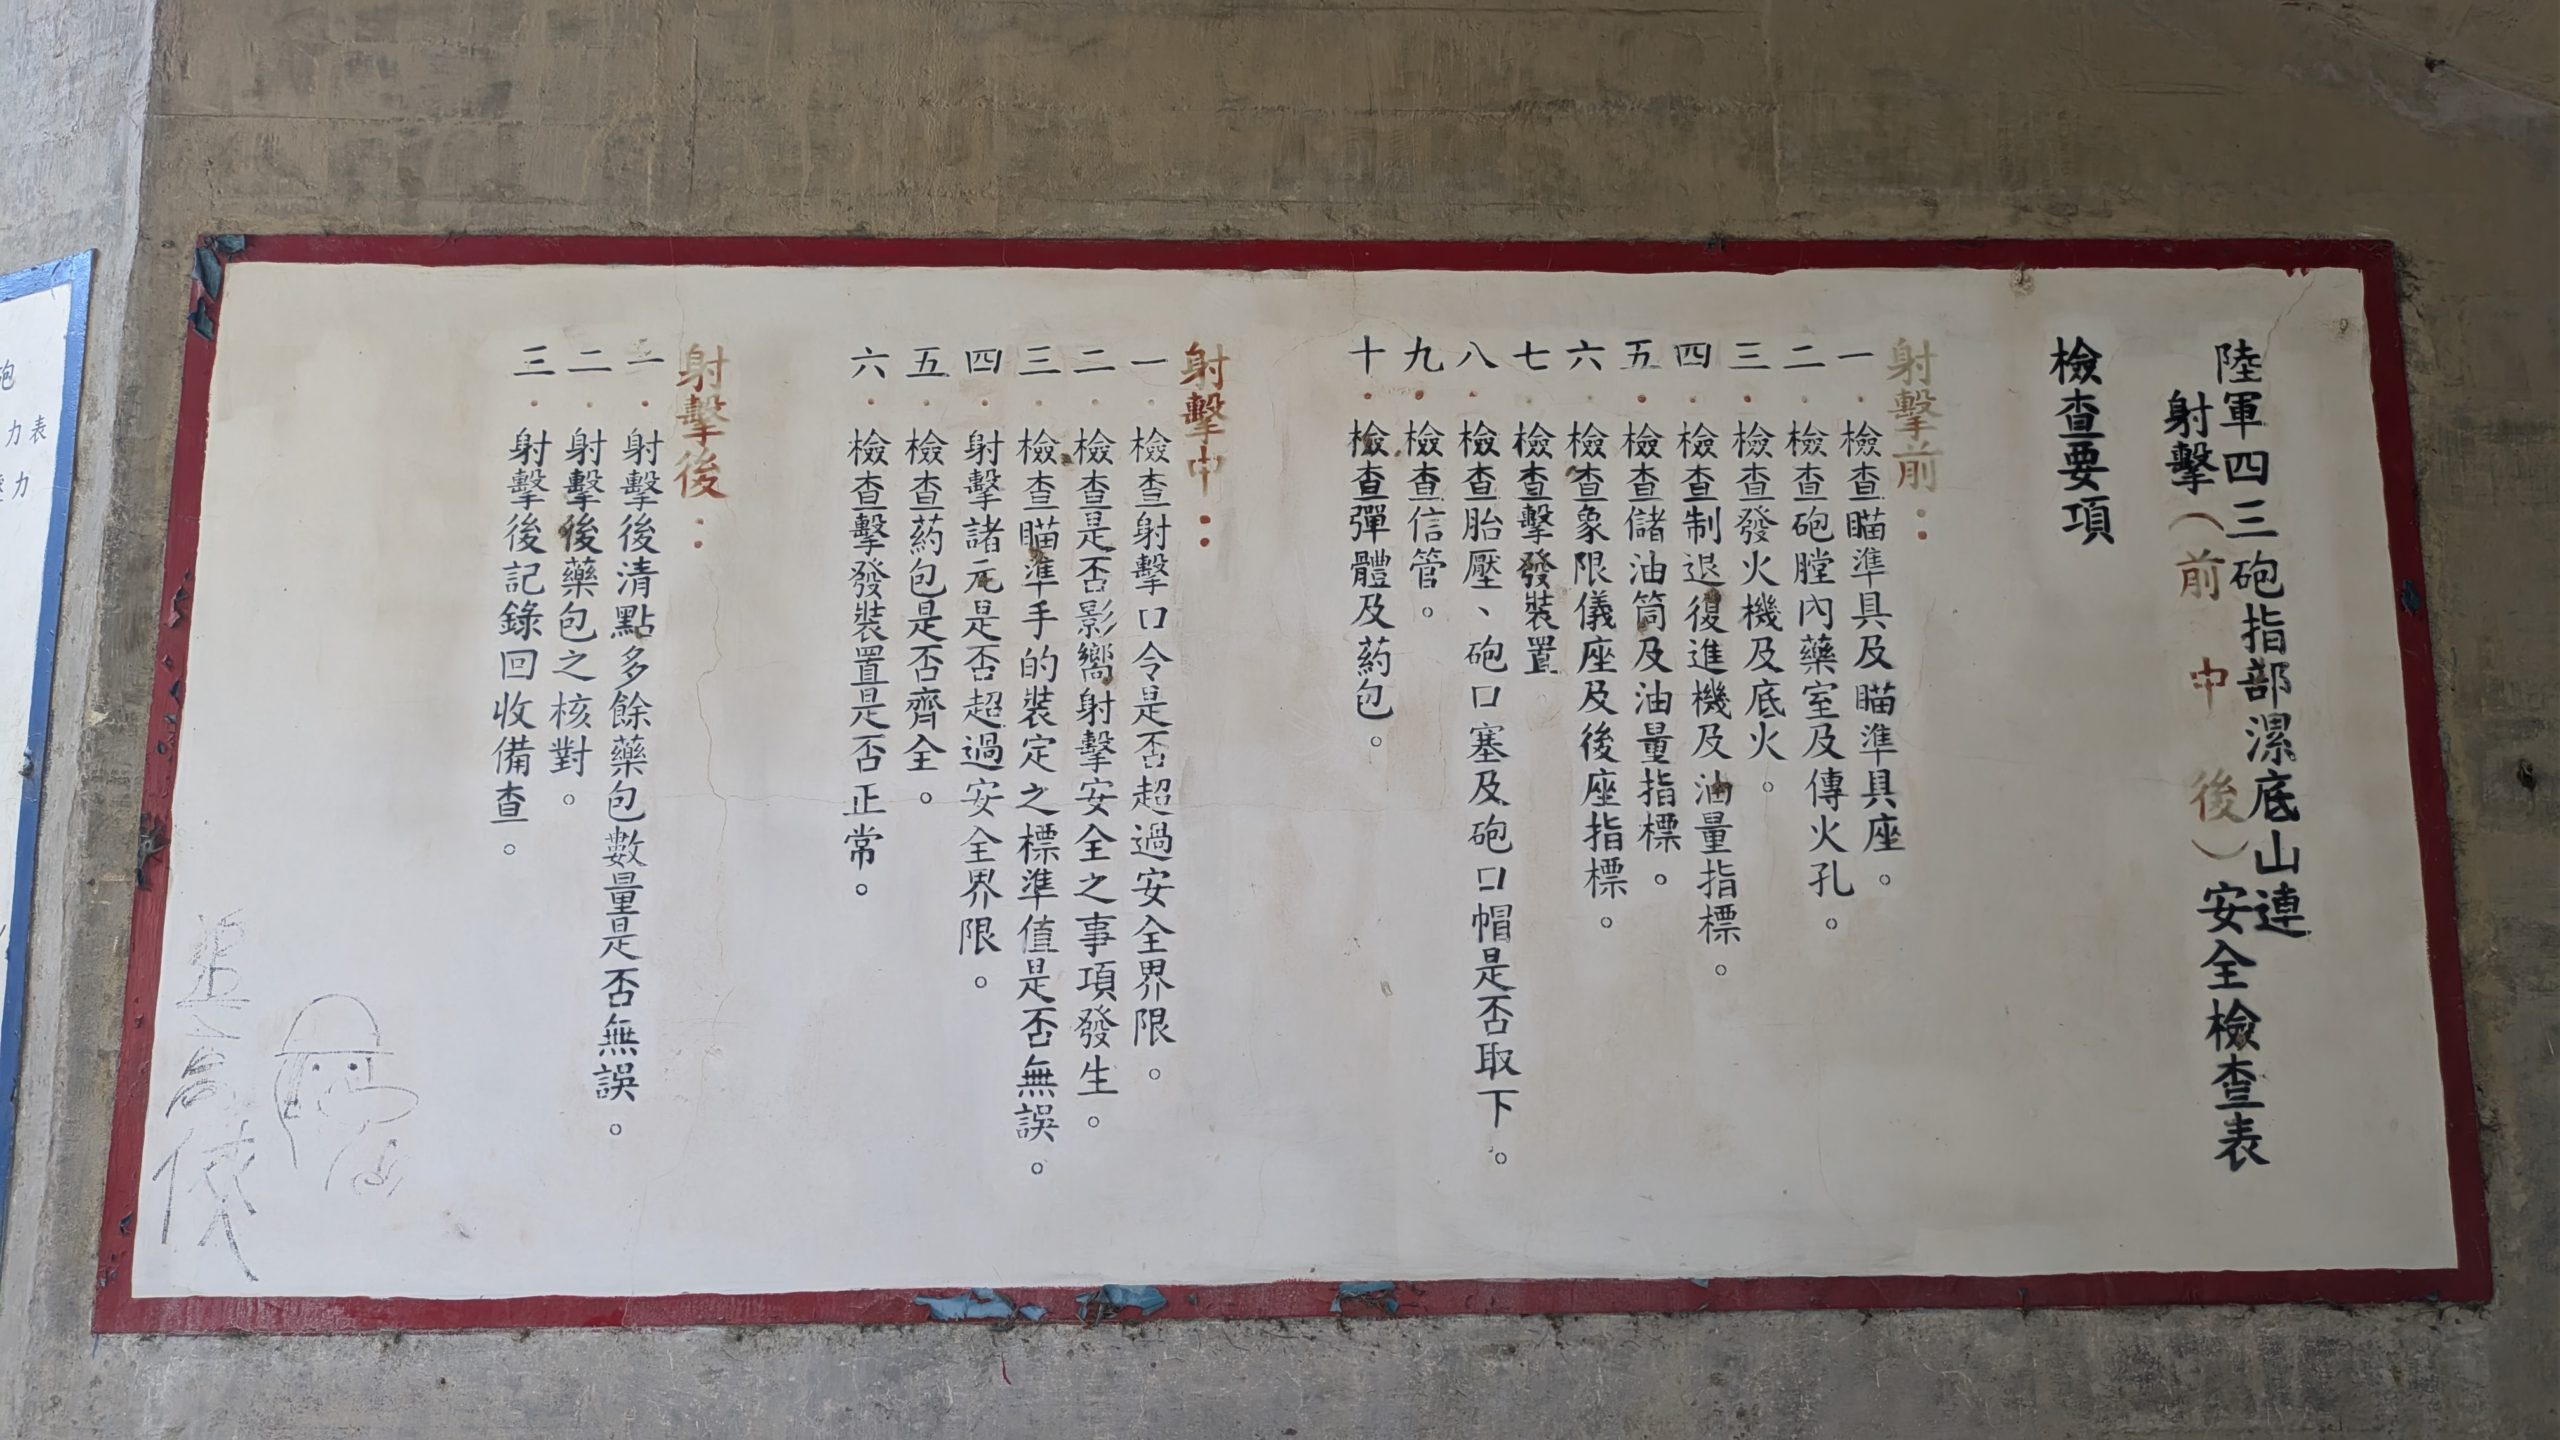 陸軍四三砲指部漯底山連
射擊（前 中 後）安全檢查表
檢查要項
射擊前：
一．檢查瞄準具及瞄準具座。
二．檢查砲膛內藥室及傳火孔。
三．檢查發火機及底火。
四．檢查制退復進機及油量指標。
五．檢查儲油筒及油量指標。
六．檢查象限儀座及後座指標。
七．檢查擊發裝置。
八．檢查胎壓、砲口塞及砲口帽是否取下。
九．檢查信管。
十．檢查彈體及葯包。
射擊中：
一．檢查射擊口令是否超過安全界限。
二．檢查是否影嚮射擊安全之事項發生。
三．檢查瞄準手的裝定之標準值是否無誤。
四．射擊諸元是否超過安全界限。
五．檢查葯包是否齊全。
六．檢查擊發裝置是否正常。
射擊後：
一．射擊後清點多餘藥包數量是否無誤。
二．射擊後藥包之核對。
三．射擊後記錄回收備查。
力表
力